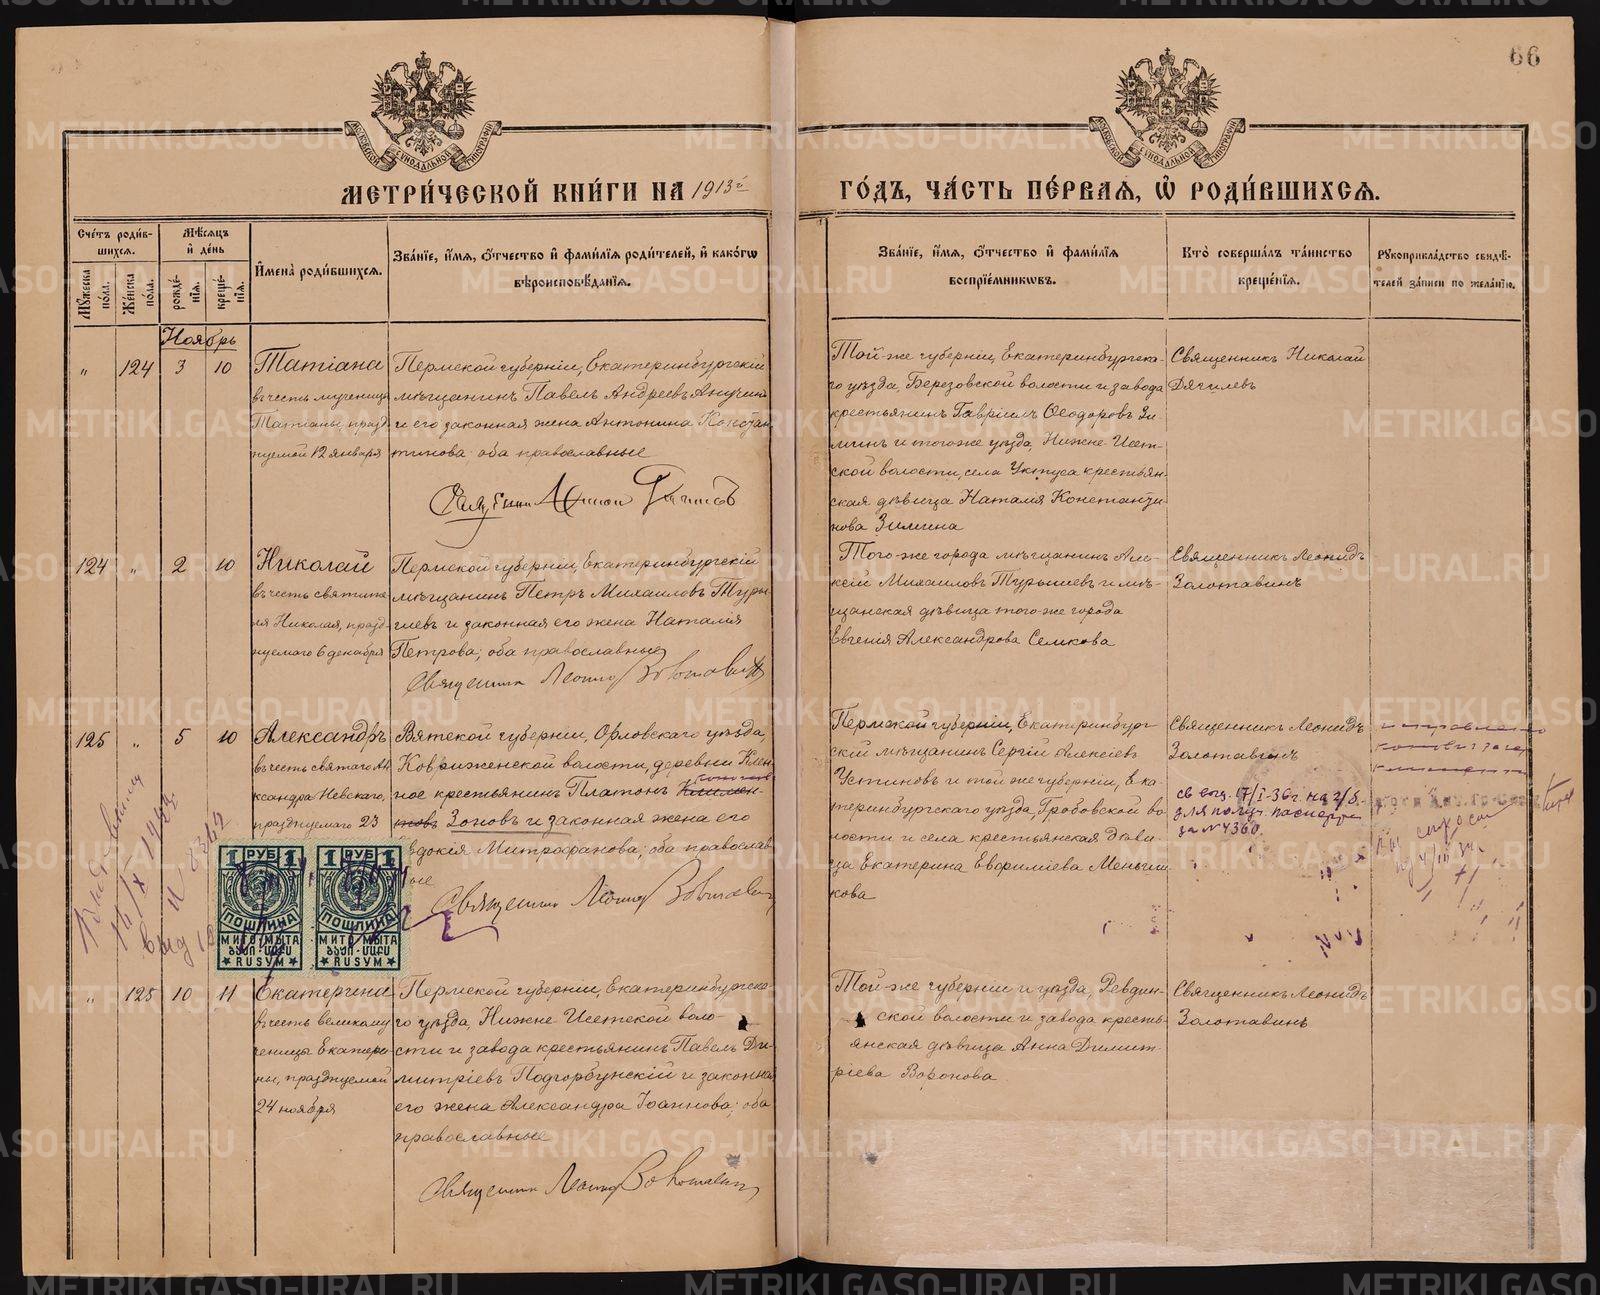 66
МЕТРИ́ЧЕСКОЙ КНИ́ГИ НА 1913й
ГО́ДЪ, ЧА́СТЬ ПЕ́РВАЯ, Ѡ҆ РОДИ́ВШИХСЯ.
Сче́тъ роди́в-
шихся.
Мѣ́сяцъ
и҆ де́нь
Мꙋ́жеска
по́ла.
Же́нска
по́ла.
рожде́-
нїя.
креще́-
нїя.
И҆мена̀ роди́вшихся.
Зва́нїе, и҆́мя, ѻ҆́тчество и҆ фами́лїя роди́телей, и҆ како́гѡ
вѣроисповѣ́данїя.
Зва́нїе, и҆́мя, ѻ҆́тчество и҆ фами́лїя
воспрїе́мникѡвъ.
Кто̀ соверша́лъ та́инство
креще́нїя.
Рꙋкоприкла́дство свидѣ́-
телей за́писи по жела́нїю.
Ноябрь
" 124 3 10
Татіана
въ честь мученицы
Татіаны, празд-
нуемой 12 января
Пермской губерніи, Екатеринбургскій
мѣщанинъ Павелъ Андреевъ Анучинъ
и его законная жена Антонина Констан-
тинова; оба православные
Той-же губерніи, Екатеринбургска-
го уѣзда, Березовской волости и завода
крестьянинъ Гавріилъ Ѳеодоровъ Зи-
минъ и того же уѣзда, Нижне-Исет-
ской волости, села Уктуса крестьян-
ская дѣвица Наталія Константи-
нова Зимина
Священникъ Николай
Дягилевъ
124 " 2 10
Николай
въ честь святите-
ля Николая, празд-
нуемаго 6 декабря
Пермской губерніи, Екатеринбургскій
мѣщанинъ Петръ Михаиловъ Туры-
шевъ и законная его жена Наталія
Петрова; оба православные
Священникъ Леонидъ Золотавинъ
Того-же города мѣщанинъ Але-
ксій Михаиловъ Турышевъ и мѣ-
щанская дѣвица того-же города
Евгенія Александрова Семкова
Священникъ Леонидъ
Золотавинъ
125 " 5 10
Александръ
въ честь святаго Але-
ксандра Невскаго,
празднуемаго 23
Вятской губерніи, Орловскаго уѣзда,
Ковриженской волости, деревни
крестьянинъ Платонъ
Зоновъ и законная жена его
Евдокія Митрофанова; оба православ-
ные
Священникъ Леонидъ Золотавинъ
Пермской губерніи, Екатеринбург-
скій мѣщанинъ Сергій Алексіевъ
Устиновъ и той же губерніи, Ека-
теринбургскаго уѣзда, Гробовской во-
лости и села крестьянская дѣви-
ца Екатерина Евфиміева Меньши-
кова
Священникъ Леонидъ
Золотавинъ
св. выд. 17/I-36г. на 2/б.
для получ. паспорта
за № 4360.
1 РУБ 1
ПОШЛИНА
МИТО МЫТА
RUSYM
1 РУБ 1
ПОШЛИНА
МИТО МЫТА
RUSYM
" 125 10 11
Екатерина
въ честь великому-
ченицы Екатери-
ны, празднуемой
24 ноября
Пермской губерніи, Екатеринбургска-
го уѣзда, Нижне-Исетской воло-
сти и завода крестьянинъ Павелъ Ди-
митріевъ Подгорбунскій и законная
его жена Александра Іоаннова; оба
православные
Священникъ Леонидъ Золотавинъ
Той-же губерніи и уѣзда, Ревдин-
ской волости и завода кресть-
янская дѣвица Анна Димит-
ріева Воронова
Священникъ Леонидъ
Золотавинъ
METRIKI.GASO-URAL.RU